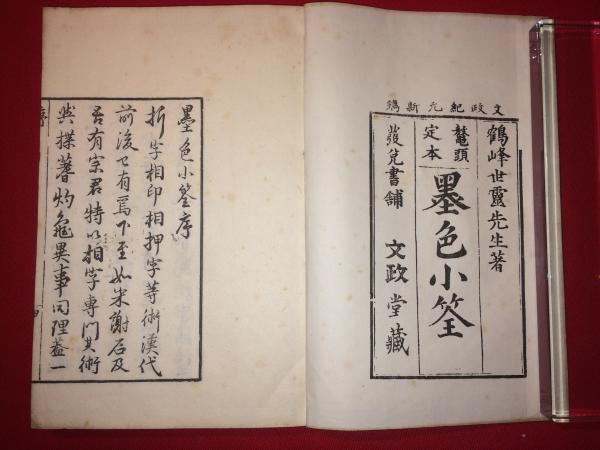 文政紀元新鐫
鶴峰世靈先生著
鼇頭
定本
墨色小筌
發兌書舖 文政堂藏
墨色小筌序
折字相印相押字等術漢代
前後已有焉下至如宋謝石及
吾有宗君特以相字專門其術
與揲蓍灼龜異事同理蓋一
序